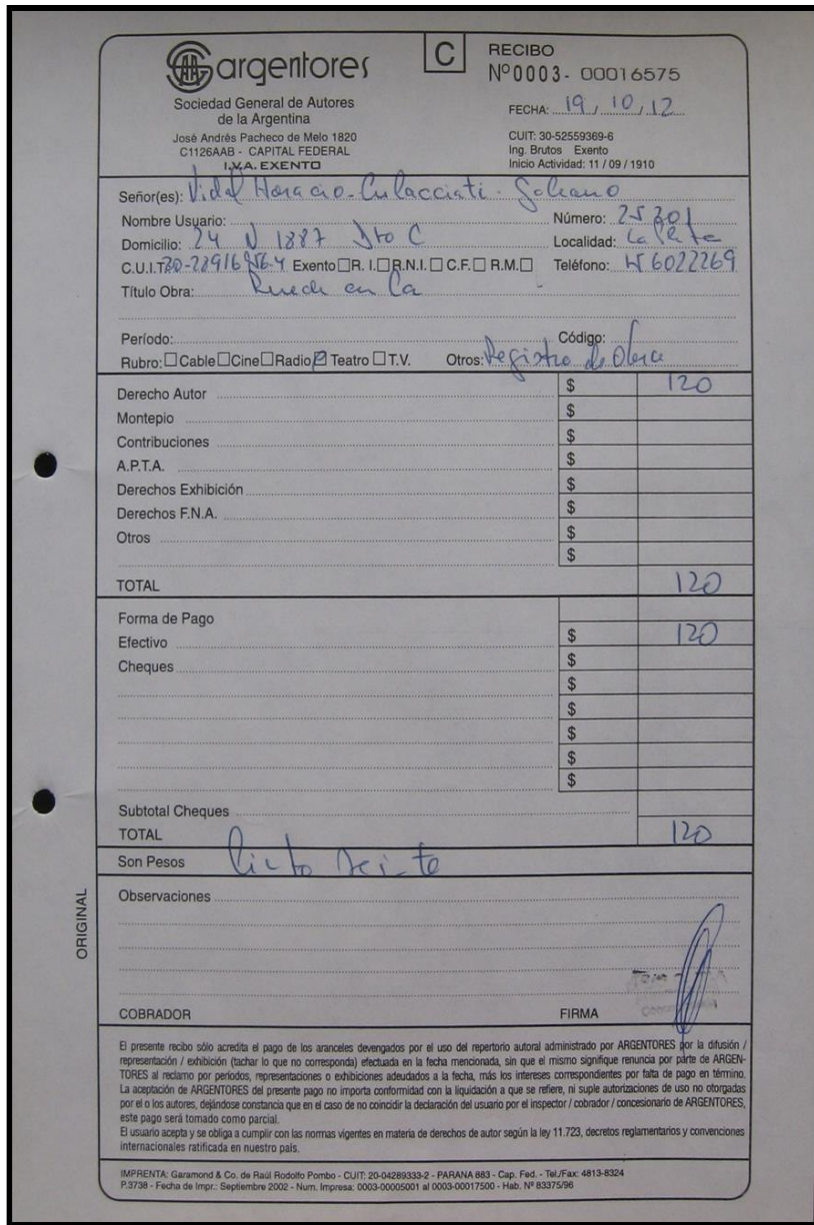 argentores
Sociedad General de Autores
de la Argentina
José Andrés Pacheco de Melo 1820
C1126AAB - CAPITAL FEDERAL
I.V.A. EXENTO
C
RECIBO
Nº0003- 00016575
FECHA: 19, 10, 12
CUIT: 30-52559369-6
Ing. Brutos Exento
Inicio Actividad: 11 / 09 / 1910
Señor(es): Vidal Horacio - Culacciati - Solano
Nombre Usuario: Número: 25201
Domicilio: 24 N 1887 Dto C Localidad: La Plata
C.U.I.T. Exento R. I. R.N.I. C.F. R.M. Teléfono: 156022269
Título Obra: en La
Período: Código:
Rubro: Cable Cine Radio Teatro T.V. Otros: Registro de Obra
Derecho Autor $ 120
Montepio $
Contribuciones $
A.P.T.A. $
Derechos Exhibición $
Derechos F.N.A. $
Otros $
$
TOTAL 120
Forma de Pago
Efectivo $ 120
Cheques $
$
$
$
$
$
Subtotal Cheques
TOTAL 120
Son Pesos Ciento Veinte
Observaciones
ORIGINAL
COBRADOR FIRMA
El presente recibo sólo acredita el pago de los aranceles devengados por el uso del repertorio autoral administrado por ARGENTORES por la difusión /
representación / exhibición (tachar lo que no corresponda) efectuada en la fecha mencionada, sin que el mismo signifique renuncia por parte de ARGEN-
TORES al reclamo por períodos, representaciones o exhibiciones adeudados a la fecha, más los intereses correspondientes por falta de pago en término.
La aceptación de ARGENTORES del presente pago no importa conformidad con la liquidación a que se refiere, ni suple autorizaciones de uso no otorgadas
por el o los autores, dejándose constancia que en el caso de no coincidir la declaración del usuario por el inspector / cobrador / concesionario de ARGENTORES,
este pago será tomado como parcial.
El usuario acepta y se obliga a cumplir con las normas vigentes en materia de derechos de autor según la ley 11.723, decretos reglamentarios y convenciones
internacionales ratificada en nuestro país.
IMPRENTA: Garamond & Co. de Raúl Rodolfo Pombo - CUIT: 20-04289333-2 - PARANA 883 - Cap. Fed. - Tel./Fax: 4813-8324
P.3738 - Fecha de Impr.: Septiembre 2002 - Num. Impresa: 0003-00005001 al 0003-00017500 - Hab. Nº 83375/96